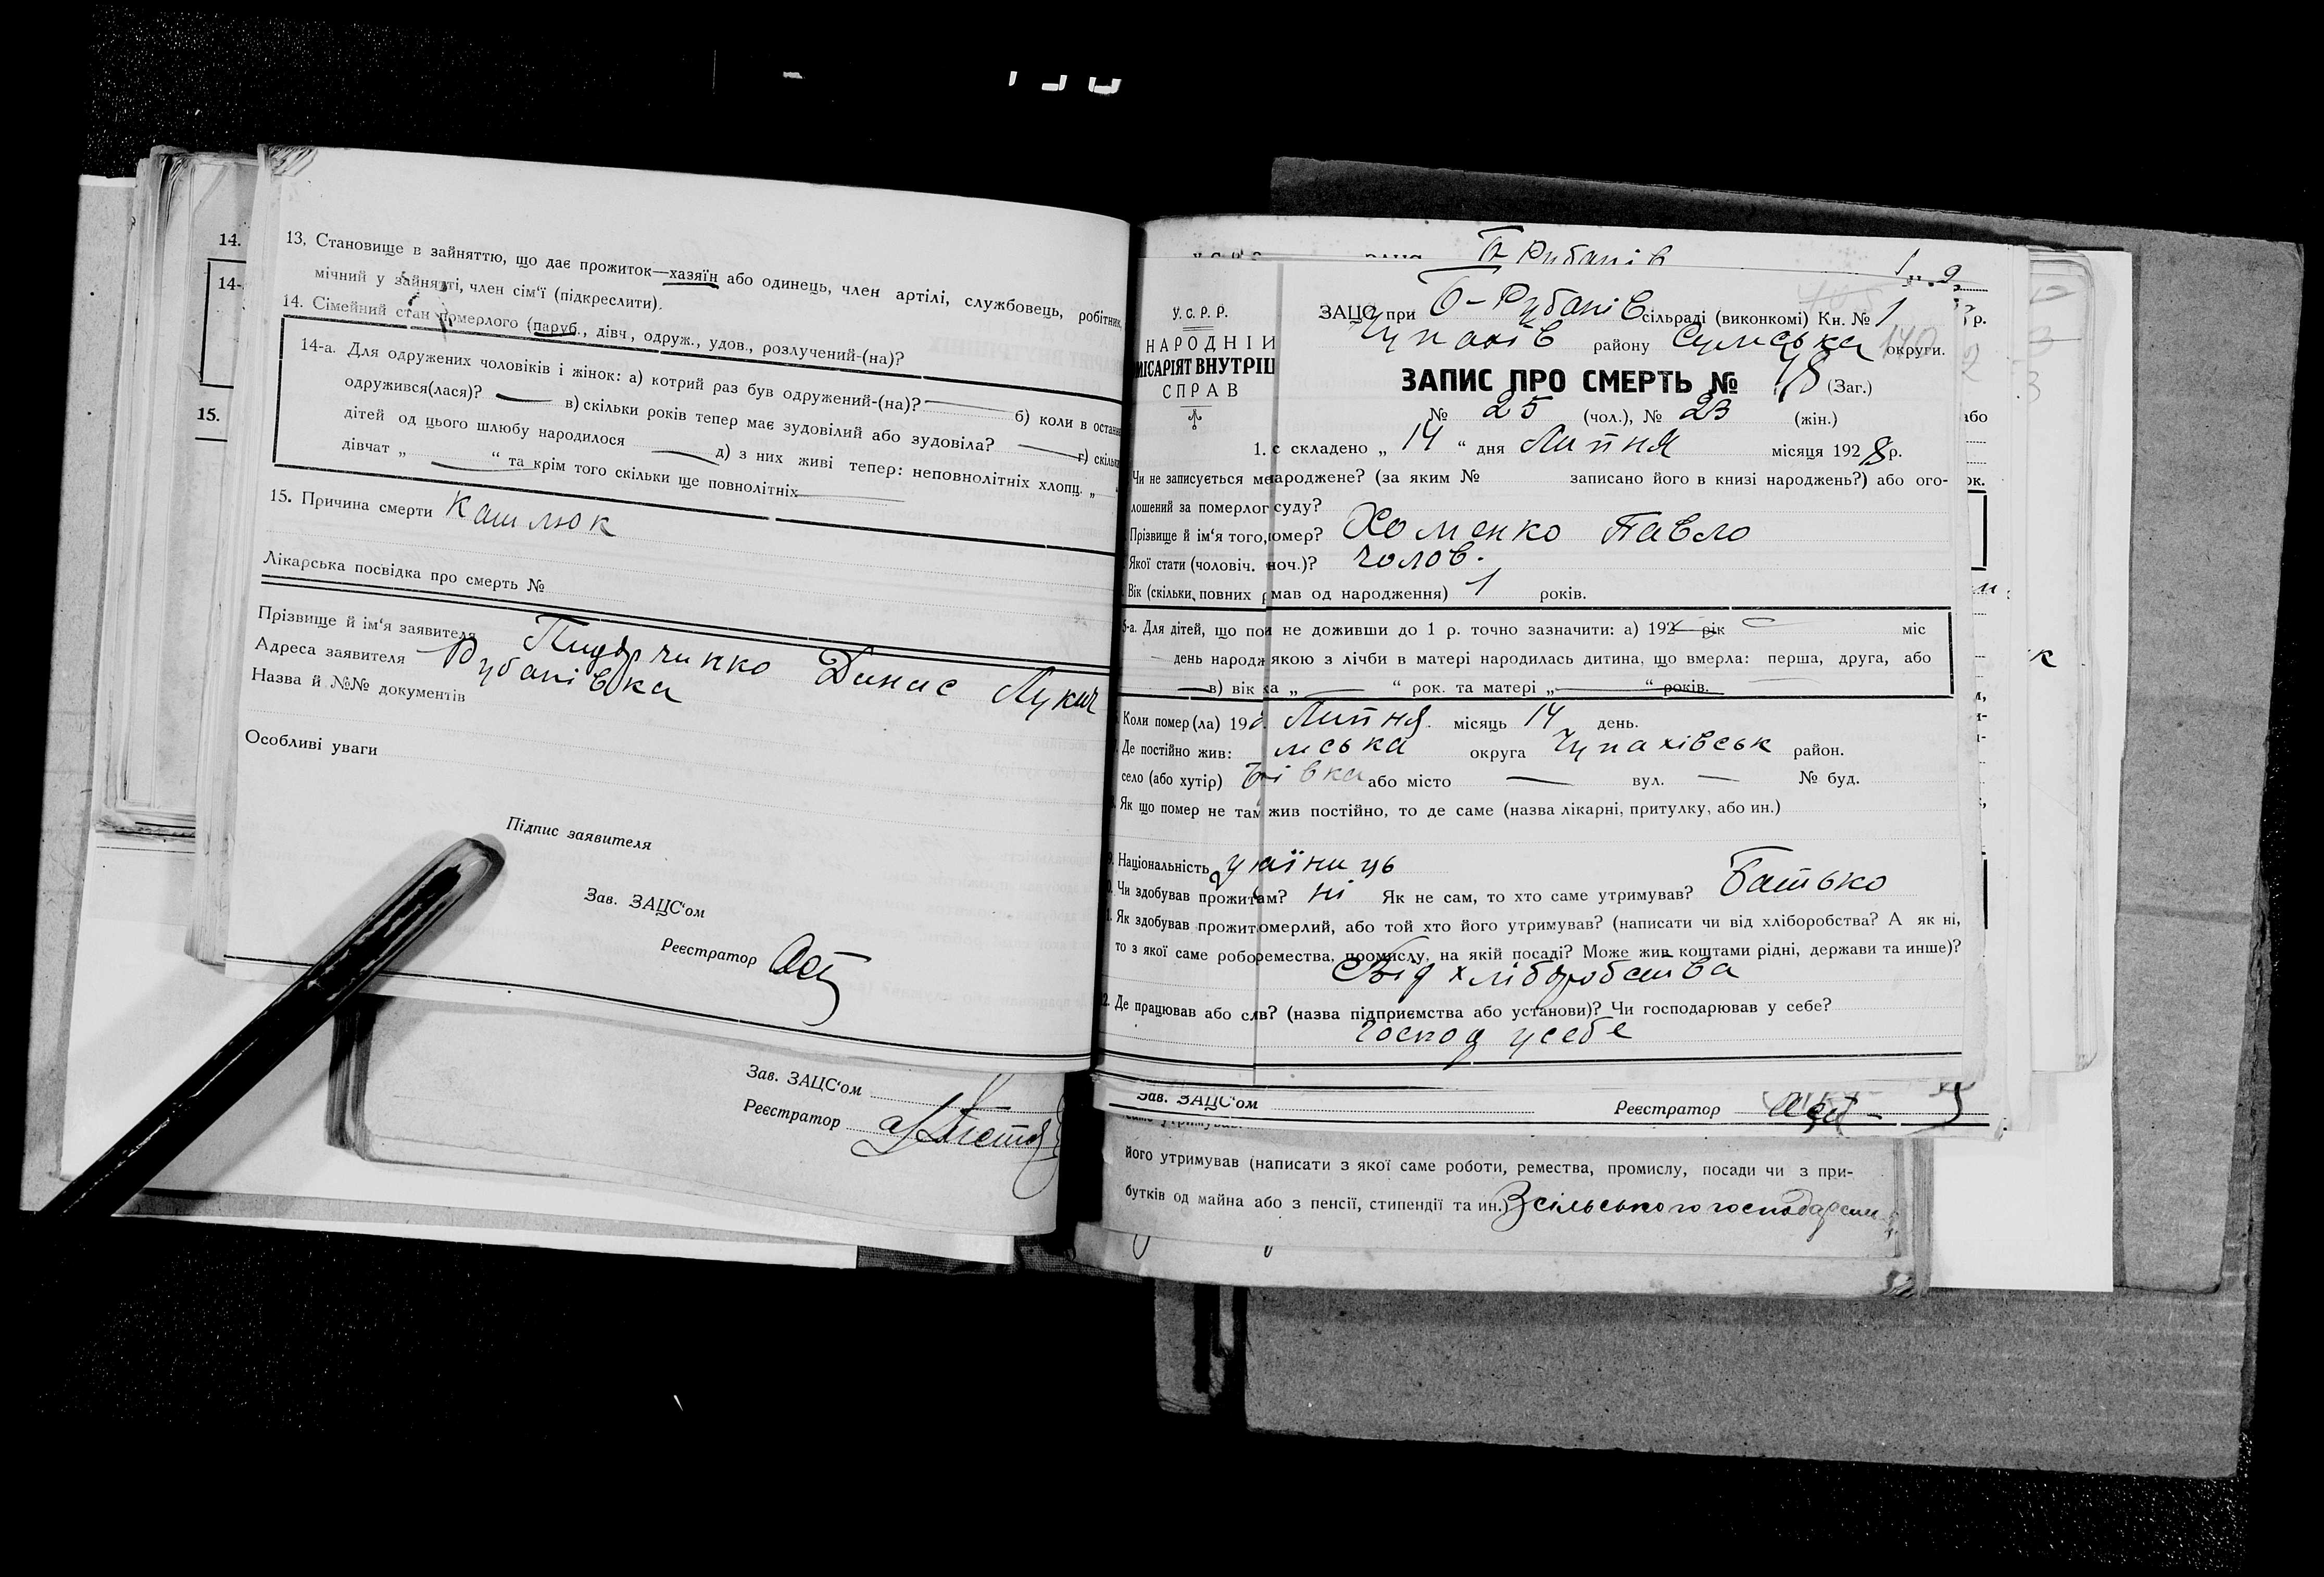 14.
14-
15.
13. Становище в зайняттю, що дає прожиток—хазяїн або одинець, член артілі, службовець, робітник,
мічний у зайнятті, член сім'ї (підкреслити).
14. Сімейний стан померлого (паруб., дівч., одруж., удов., розлучений-(на)?
14-а. Для одружених чоловіків і жінок: а) котрий раз був одружений-(на)? б) коли в останн
одружився(лася)? в) скільки років тепер має зудовілий або зудовіла? г) скільк
дітей од цього шлюбу народилося д) з них живі тепер: неповнолітніх хлопц. „
дівчат „ “ та крім того скільки ще повнолітніх
15. Причина смерти Кашлюк
Лікарська посвідка про смерть №
Прізвище й ім'я заявителя Динис Лукич
Адреса заявителя Рубанівка
Назва й №№ документів
Особливі уваги
Підпис заявителя
Зав. ЗАЦС'ом
Реєстратор
Зав. ЗАЦС'ом
Реєстратор
Б-Рубанів
У. С. Р. Р.
НАРОДНІЙ
МІСАРІЯТ ВНУТРІШ
СПРАВ
ЗАЦС при Б-Рубанів сільраді (виконкомі) Кн. № 1
Чупахів району Сумська округи.
ЗАПИС ПРО СМЕРТЬ № 48 (Заг.)
№ 25 (чол.), № 23 (жін.)
1. с складено „ 14 “ дня Липня місяця 1928 р.
Чи не записується ме ароджене? (за яким № записано його в книзі народжень?) або ого-
лошений за померлог суду?
Прізвище й ім'я того, омер? Хоменко Павло
Якої стати (чоловіч. ноч.)? чолов.
Вік (скільки повних р мав од народження) 1 років.
5-а. Для дітей, що пом не доживши до 1 р. точно зазначити: а) 192 рік міс
день народж якою з лічби в матері народилась дитина, що вмерла: перша, друга, або
в) вік ка „ “ рок. та матері „ “ років.
Коли помер(ла) 198 Липня місяць 14 день.
Де постійно жив: мська округа Чупахівськ район.
село (або хутір) Б івка або місто — вул. — № буд.
Як що помер не там жив постійно, то де саме (назва лікарні, притулку, або ин.)
9. Національність у аїниць
0. Чи здобував прожит ам? ні Як не сам, то хто саме утримував? Батько
1. Як здобував прожит омерлий, або той хто його утримував? (написати чи від хліборобства? А як ні,
то з якої саме робо ремества, промислу, на якій посаді? Може жив коштами рідні, держави та инше)?
Від хліборобства
2. Де працював або сл в? (назва підприємства або установи)? Чи господарював у себе?
Господ у себе
Зав. ЗАЦС'ом Реєстратор
його утримував (написати з якої саме роботи, ремества, промислу, посади чи з при-
бутків од майна або з пенсії, стипендії та ин.) З сільського господарсти